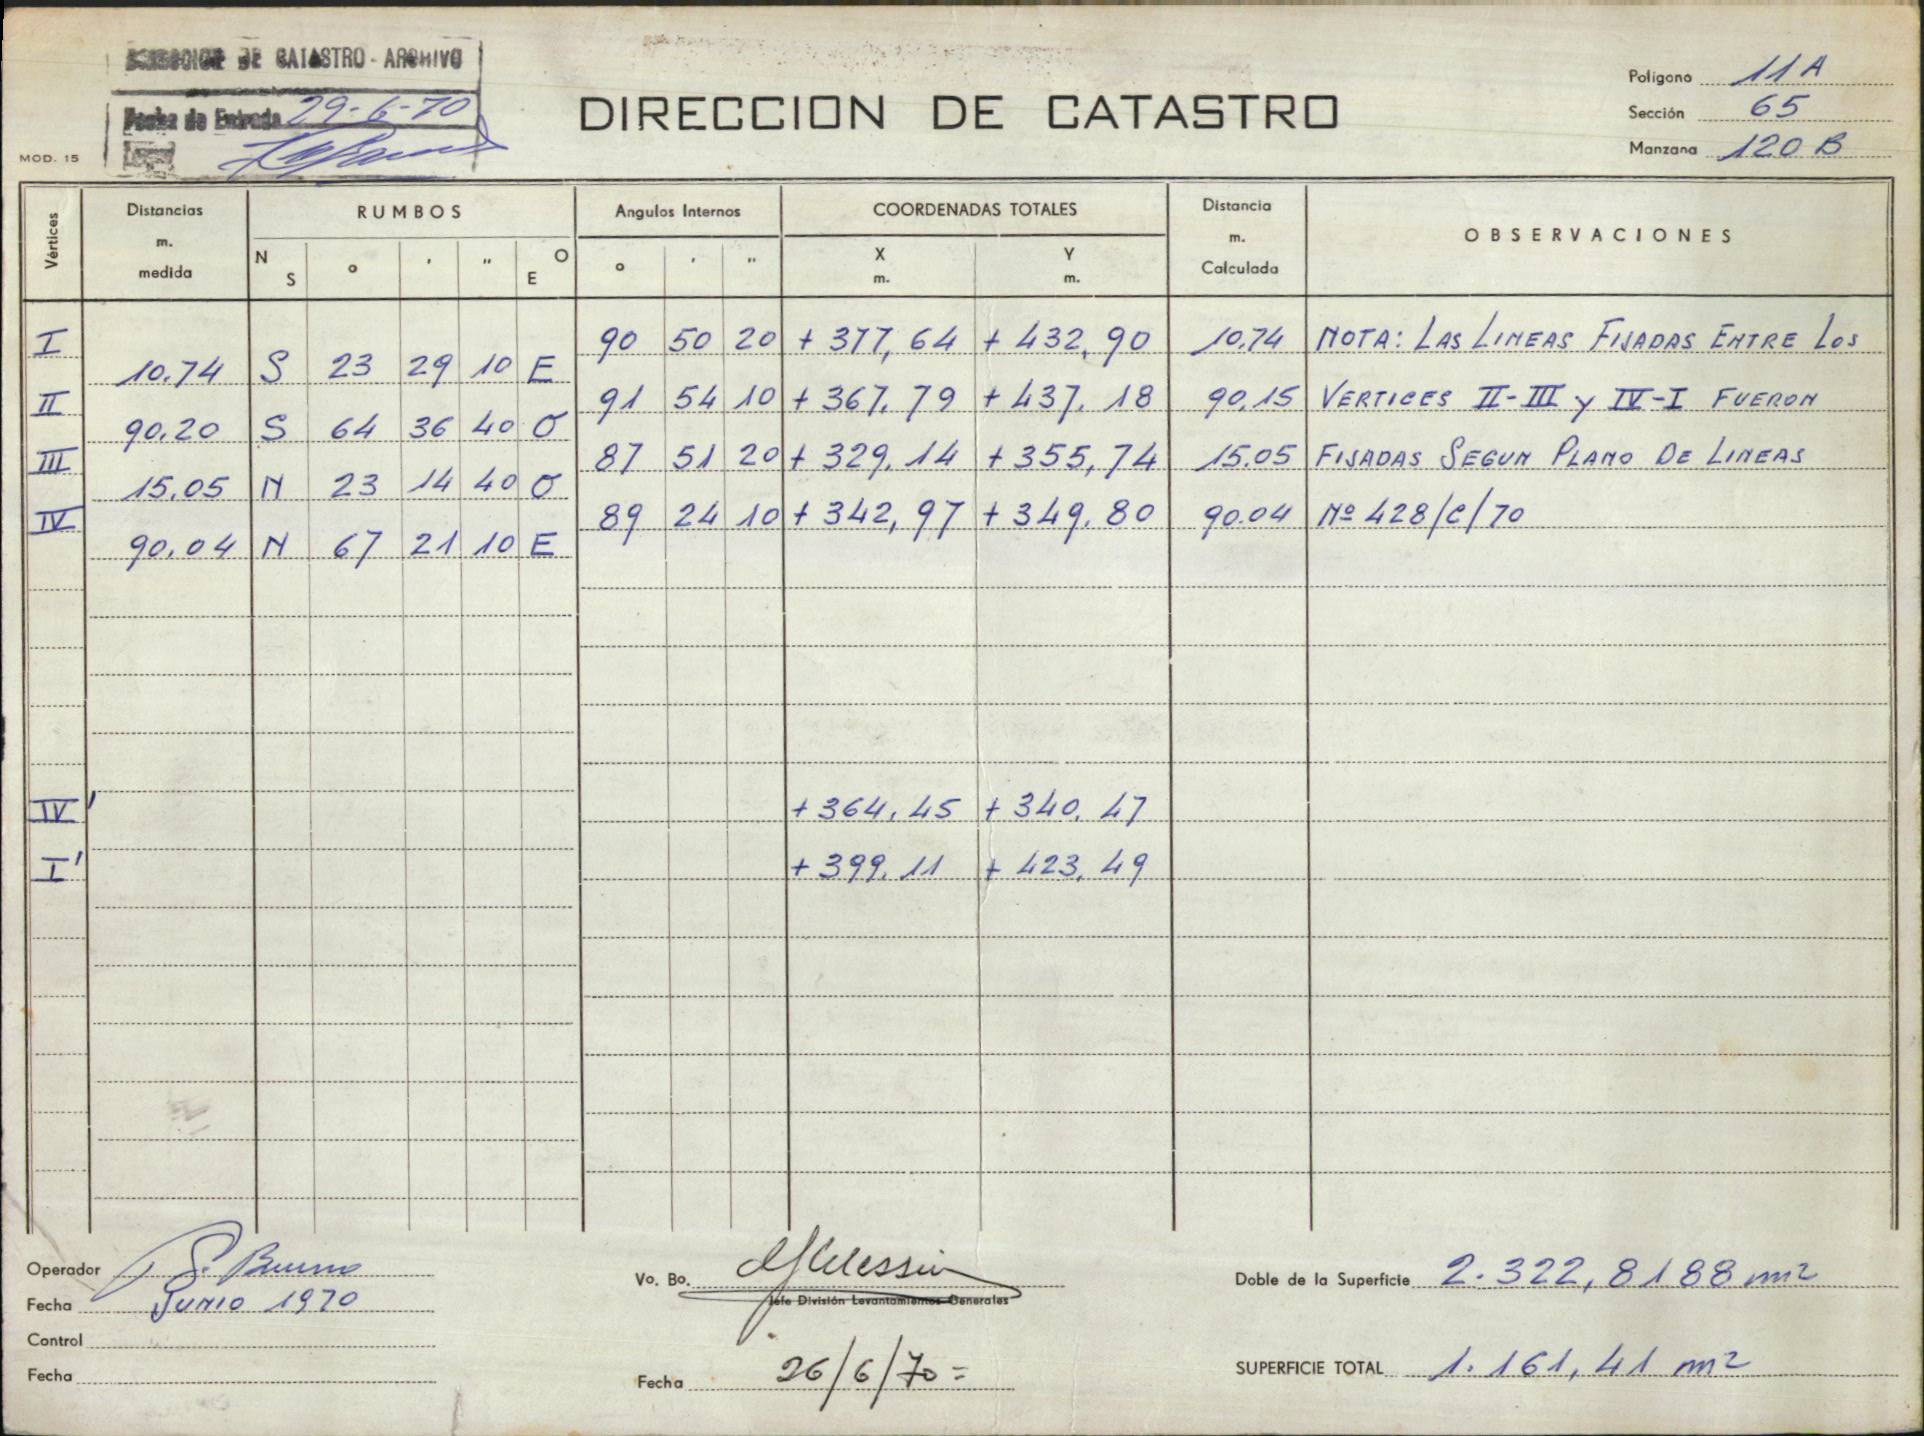 DIRECCION DE CATASTRO - ARCHIVO
Fecha de Entrada 29-6-70
Legajo
MOD. 15
DIRECCION DE CATASTRO
Polígono 11A
Sección 65
Manzana 120 B
Vértices Distancias m. medida RUMBOS Angulos Internos COORDENADAS TOTALES Distancia m. Calculada OBSERVACIONES
N S ° ' " O E ° ' " X m. Y m.
I 90 50 20 + 377,64 + 432,90 10.74 NOTA: LAS LINEAS FIJADAS ENTRE LOS
10.74 S 23 29 10 E
II 91 54 10 + 367.79 + 437.18 90.15 VERTICES II-III y IV-I FUERON
90.20 S 64 36 40 O
III 87 51 20 + 329.14 + 355,74 15.05 FIJADAS SEGUN PLANO DE LINEAS
15.05 N 23 14 40 O
IV 89 24 10 + 342,97 + 349.80 90.04 Nº 428/C/70
90.04 N 67 21 10 E
IV' + 364.45 + 340.47
I' + 399.11 + 423.49
Operador S. Bueno
Fecha JUNIO 1970
Control
Fecha
Vo. Bo.
Jefe División Levantamientos Generales
Fecha 26/6/70=
Doble de la Superficie 2.322,8188 m2
SUPERFICIE TOTAL 1.161,41 m2